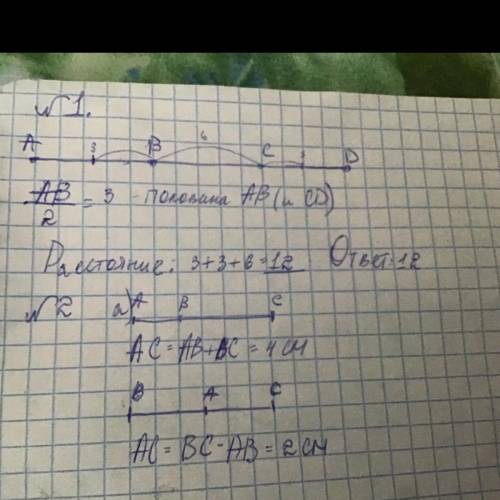 №1.
A 3 B 6 C 3 D
AB/2 = 3 - половина AB (и CD)
Расстояние: 3+3+6=12 Ответ: 12
№2 а) A B C
AC = AB + BC = 4 см
B A C
AC = BC - AB = 2 см